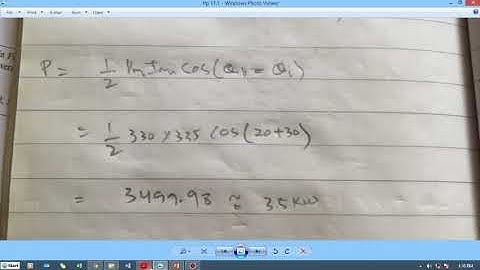 Windows Photo Viewer
File Print E-mail Burn Open
P = 1/2 Vm Im Cos(θv - θi)
= 1/2 330 x 325 Cos(20+30)
= ≈ 35 KW
Start